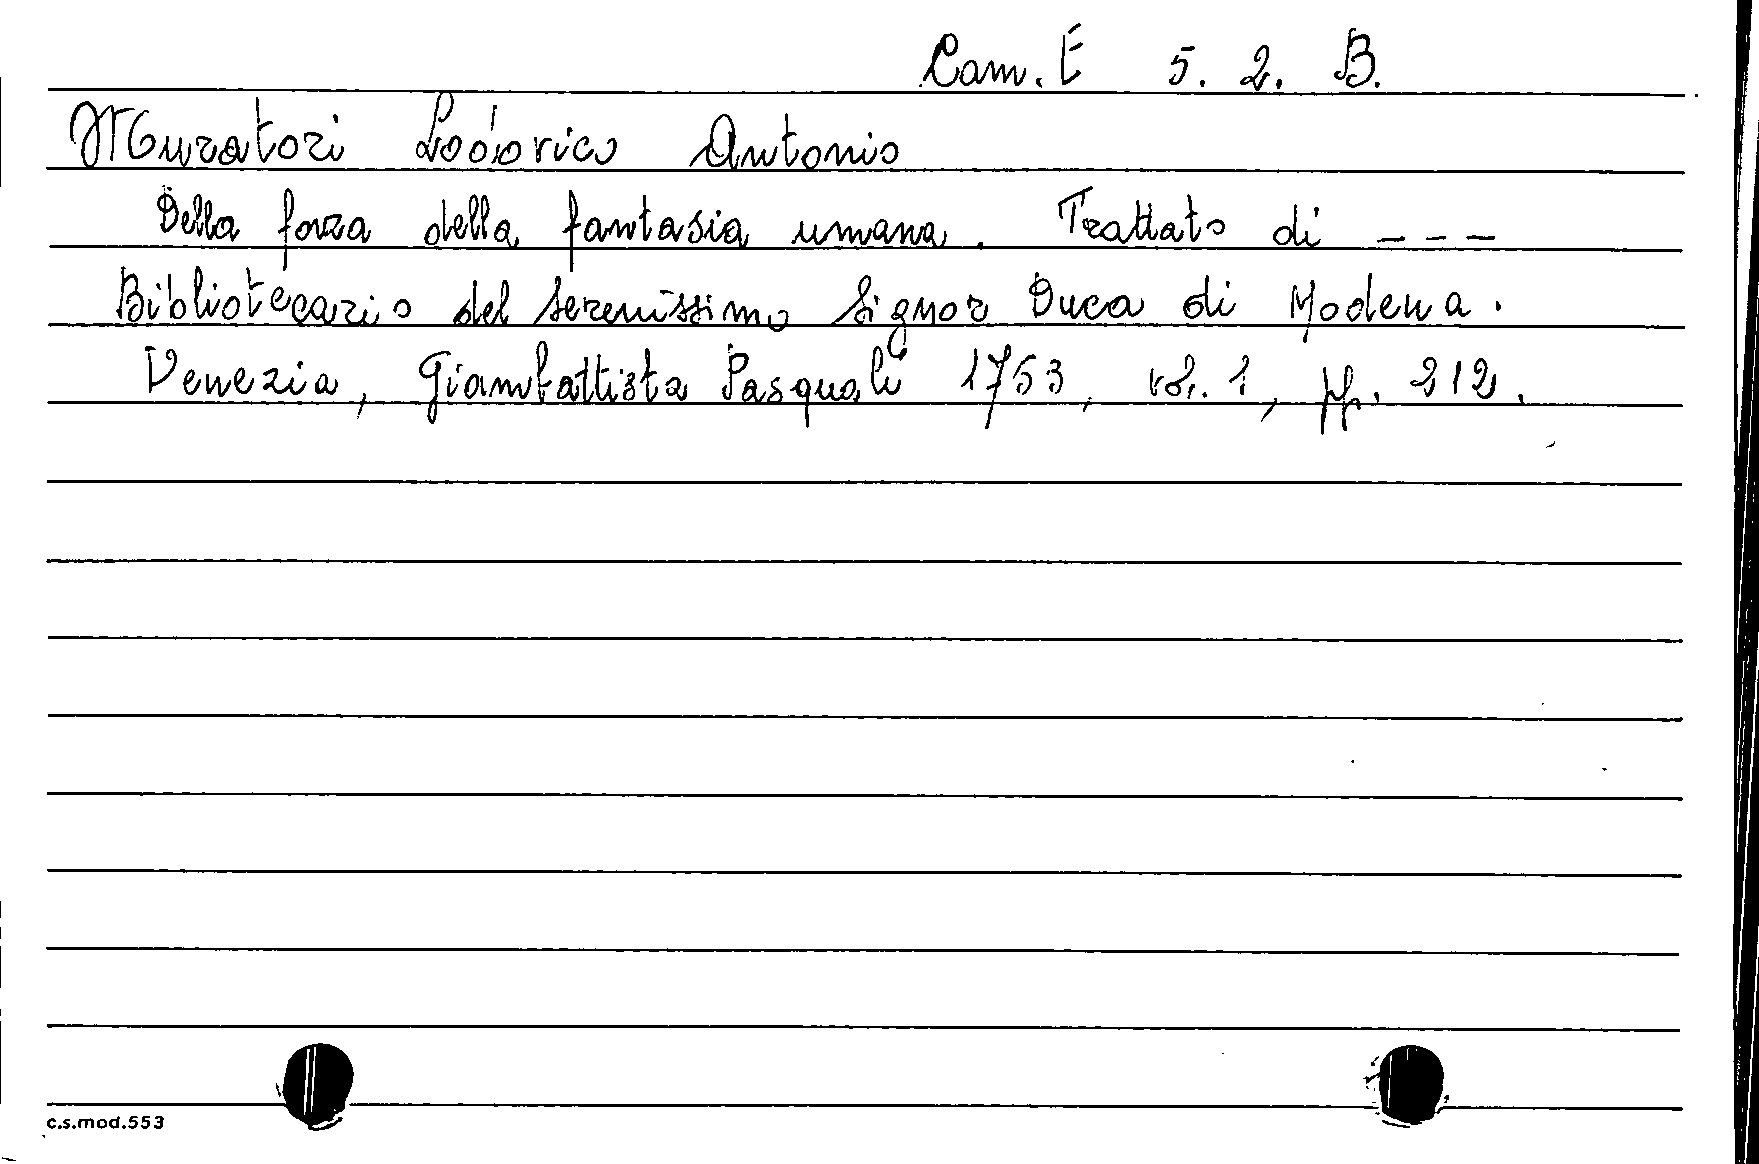 Cam. E 5. 2. B.
Muratori Lodovico Antonio
Della forza della fantasia umana. Trattato di ---
Bibliotecario del serenissimo Signor Duca di Modena.
Venezia, Giambattista Pasquali 1753, vol. 1, pp. 212.
c.s.mod.553